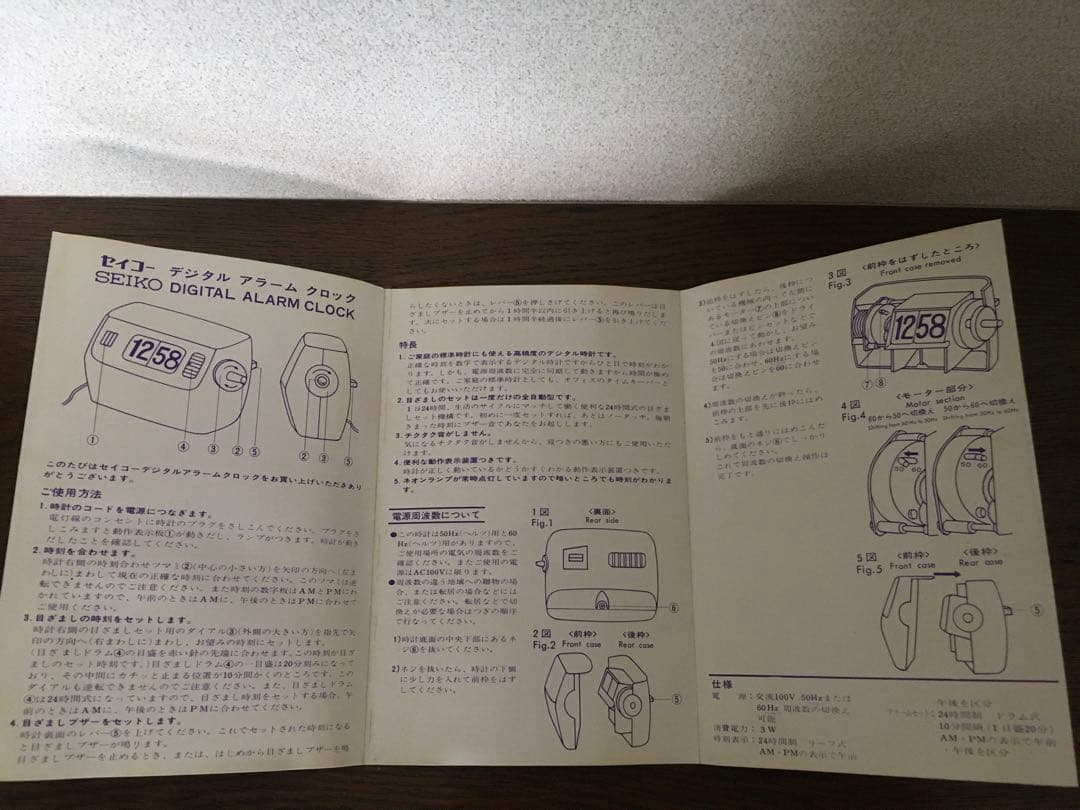 セイコー デジタル アラーム クロック
SEIKO DIGITAL ALARM CLOCK
12 58
①
④ ③ ② ⑤
② ③ ⑤
このたびはセイコーデジタルアラームクロックをお買い上げいただきあり
がとうございます。
ご使用方法
1. 時計のコードを電源につなぎます。
電灯線のコンセントに時計のプラグをさしこんでください。プラグをさ
しこみますと動作表示板①が動きだし、ランプがつきます。時計が動き
だしたことを確認してください。
2. 時刻を合わせます。
時計右側の時刻合わせツマミ②(中心の小さい方)を矢印の方向へ(左ま
わしに)まわして現在の正確な時刻に合わせてください。このツマミは逆
転できませんのでご注意ください。また時刻の数字板はAMとPMにわ
かれていますので、午前のときはAMに、午後のときはPMに合わせて
ご使用ください。
3. 目ざましの時刻をセットします。
時計右側の目ざましセット用のダイアル③(外側の大きい方)を指先で矢
印の方向へ(右まわしに)まわし、お望みの時刻にセットします。
(目ざましドラム④の目盛を赤い針の先端に合わせます。この時刻が目ざ
ましのセット時刻です。)目ざましドラム④の一目盛は20分刻みになって
おり、その中間にカチッと止まる位置が10分間かくのところです。この
ダイアルも逆転できませんのでご注意ください。また、目ざましドラム
④は24時間式となっていますので、目ざまし時刻をセットする場合、午
前のときはAMに、午後のときはPMに合わせてください。
4. 目ざましブザーをセットします。
時計裏面のレバー⑤を上げてください。これでセットされた時刻になる
と目ざましブザーが鳴ります。
目ざましブザーを止めるとき、または、はじめから目ざましブザーを鳴
らしたくないときは、レバー⑤を押しさげてください。このレバーは目
ざましブザーを止めてから1時間半以内に引き上げると再び鳴りだしま
す。次にセットする場合は1時間半経過後にレバー⑤を引き上げてくだ
さい。
特長
1. ご家庭の標準時計にも使える高精度のデジタル時計です。
正確な時刻を数字で表示するデジタル時計ですからひと目で時刻がわか
ります。しかも、電源周波数に完全に同期して動きますから時間が極め
て正確です。ご家庭の標準時計としても、オフィスのタイムキーパーと
してもお使いいただけます。
2. 目ざましのセットは一度だけの全自動型です。
1日24時間、生活のサイクルにマッチして働く便利な24時間式の目ざま
しセット機構です。初めに一度セットすれば、あとはノータッチ。毎朝
きまった時刻にブザー音であなたをお起しします。
3. チクタク音がしません。
気になるチクタク音がしませんから、寝つきの悪い方にもご使用いただ
けます。
4. 便利な動作表示装置つきです。
時計が正しく動いているかどうかすぐわかる動作表示装置つきです。
5. ネオンランプが常時点灯していますので暗いところでも時刻がわかりま
す。
電源周波数について
●この時計は50Hz(ヘルツ)用と60
Hz(ヘルツ)用がありますので、
ご使用場所の電気の周波数をご
確認ください。またご使用の電
源はAC100Vに限ります。
●周波数の違う地域への贈物の場
合、または転居の場合などには
ご注意ください。転居などで切
換えが必要な場合はつぎの順序
で行なってください。
1)時計底面の中央下部にあるネ
ジ⑥を抜いてください。
2)ネジを抜いたら、時計の下側
に少し力を入れて前枠をはず
してください。
1図 〈裏面〉
Fig.1 Rear side
⑥
2図 〈前枠〉 〈後枠〉
Fig.2 Front case Rear case
⑤
3)前枠をはずしたら、後枠につ
いている機械の向って左側に
あるモーター⑦の上部につい
ている切換えピン⑧をドライ
バーまたはピンセットなどで
4図に従って動かし、お望み
の周波数にあわせます。
50Hzにする場合は切換えピン
を50に合わせ、60Hzにする場
合は切換えピンを60に合わせ
ます。
4)周波数の切換えが終ったら、
前枠の上部を先に後枠にはめ
こみます。
5)前枠をもと通りにはめこんだ
ら、底面のネジ⑥でしっかり
しめてください。
これで周波数の切換え操作は
完了です。
3図 〈前枠をはずしたところ〉
Fig.3 Front case removed
12 58
⑦ ⑧
4図 〈モーター部分〉
Fig.4 Motor section
60から50へ切換え 50から60へ切換え
Shifting from 60Hz to 50Hz Shifting from 50Hz to 60Hz
50 60
50 60
5図 〈前枠〉 〈後枠〉
Fig.5 Front case Rear case
⑤
仕様
電 源:交流100V 50Hzまたは
60Hz 周波数の切換え
可能
消費電力:3W
時刻表示:24時間制 リーフ式
AM・PMの表示で午前
午後を区分
アラームセット:24時間制 ドラム式
10分間隔(1目盛20分)
AM・PMの表示で午前
・午後を区分